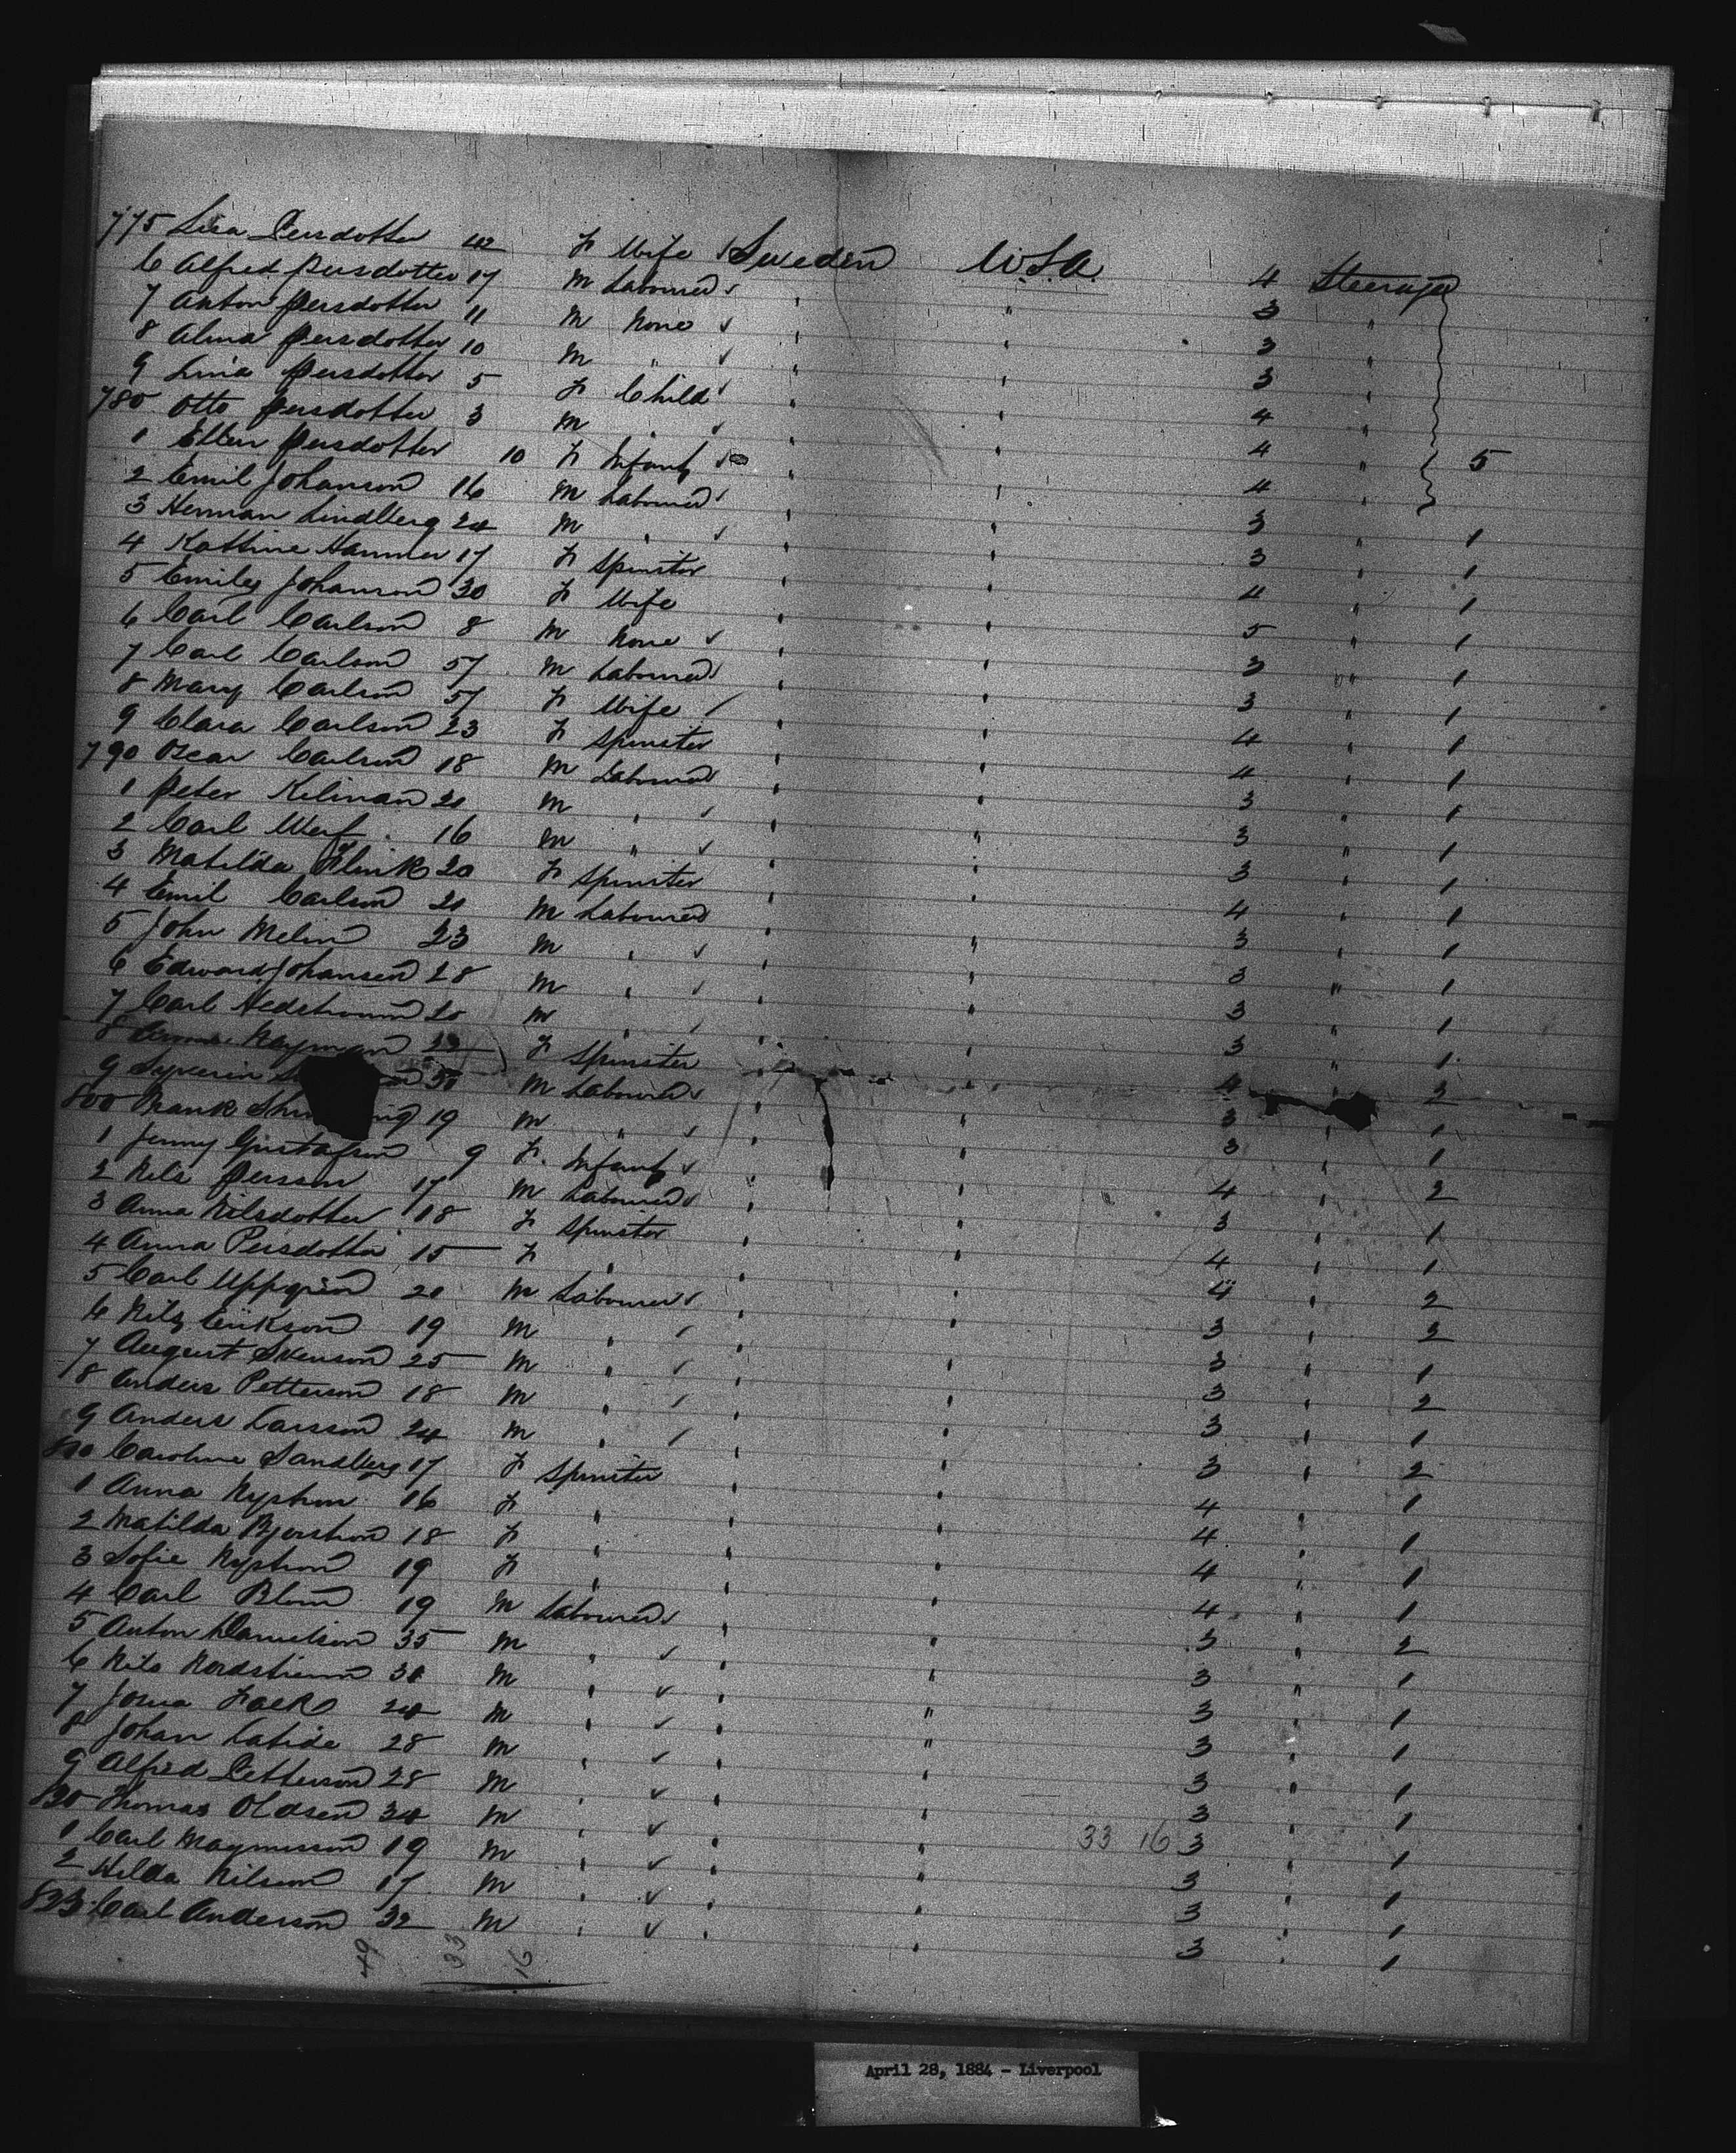 775 Lisa Persdotter 42 F Wife Sweden U.S.A. 4 Steerage
6 Alfred Persdotter 17 M Labourer " " 3 "
7 Anton Persdotter 11 M None " " 3 "
8 Alma Persdotter 10 M " " " 3 "
9 Lina Persdotter 5 F Child " " 4 "
780 Otto Persdotter 3 M " " " 4 " 5
1 Ellen Persdotter 10 F Infant " " 4 "
2 Emil Johanson 16 M Labourer " " 3 " 1
3 Herman Lindberg 24 M " " " 3 " 1
4 Kathine Hammer 17 F Spinster " " 4 " 1
5 Emily Johanson 30 F Wife " " 5 " 1
6 Carl Carlson 8 M None " " 3 " 1
7 Carl Carlson 57 M Labourer " " 3 " 1
8 Mary Carlson 57 F Wife " " 4 " 1
9 Clara Carlson 23 F Spinster " " 4 " 1
790 Oscar Carlson 18 M Labourer " " 3 " 1
1 Peter Kilman M " " " 3 " 1
2 Carl 16 M " " " 3 " 1
3 Matilda Flink 20 F Spinster " " 4 " 1
4 Emil Carlson M Labourer " " 3 " 1
5 John Melin 23 M " " " 3 " 1
6 Edward Johansen 28 M " " " 3 " 1
7 Carl Hedstromm 20 M " " " 3 " 1
8 Nayman 22 F Spinster " " 4 " 2
9 M Labourer " " 3 " 1
800 Frank 19 M " " " 3 " 1
1 Jenny Gustafson 9 F Infant " " 4 " 2
2 Nels Persson 17 M Labourer " " 3 " 1
3 Anna Nilsdotter 18 F Spinster " " 4 " 1
4 Anna Persdotter 15 F " " " 4 " 2
5 Carl Uppgren M Labourer " " 3 " 2
6 Nils Erikson 19 M " " " 3 " 1
7 August Svenson 25 M " " " 3 " 2
8 Anders Petterson 18 M " " " 3 " 1
9 Anders Larsson 24 M " " " 3 " 2
810 Caroline Sandberg 17 F Spinster " " 4 " 1
1 Anna Nystrom 16 F " " " 4 " 1
2 Matilda Bjerstrom 18 F " " " 4 " 1
3 Sofie Nystrom 19 F " " " 4 " 1
4 Carl Blom 19 M Labourer " " 3 " 2
5 Anton Danielson 35 M " " " 3 " 1
6 Nils Nordstromm M " " " 3 " 1
7 Falk 24 M " " " 3 " 1
8 Johan 28 M " " " 3 " 1
9 Alfred Petterson 28 M " " " 3 " 1
820 Thomas Oldsen 34 M " " " 33 16 3 " 1
1 Carl Magnusson 19 M " " " 3 " 1
2 Hilda Nilson 17 M " " " 3 " 1
823 Carl Anderson 32 M " " " 3 " 1
49 33 16
April 28, 1884 - Liverpool